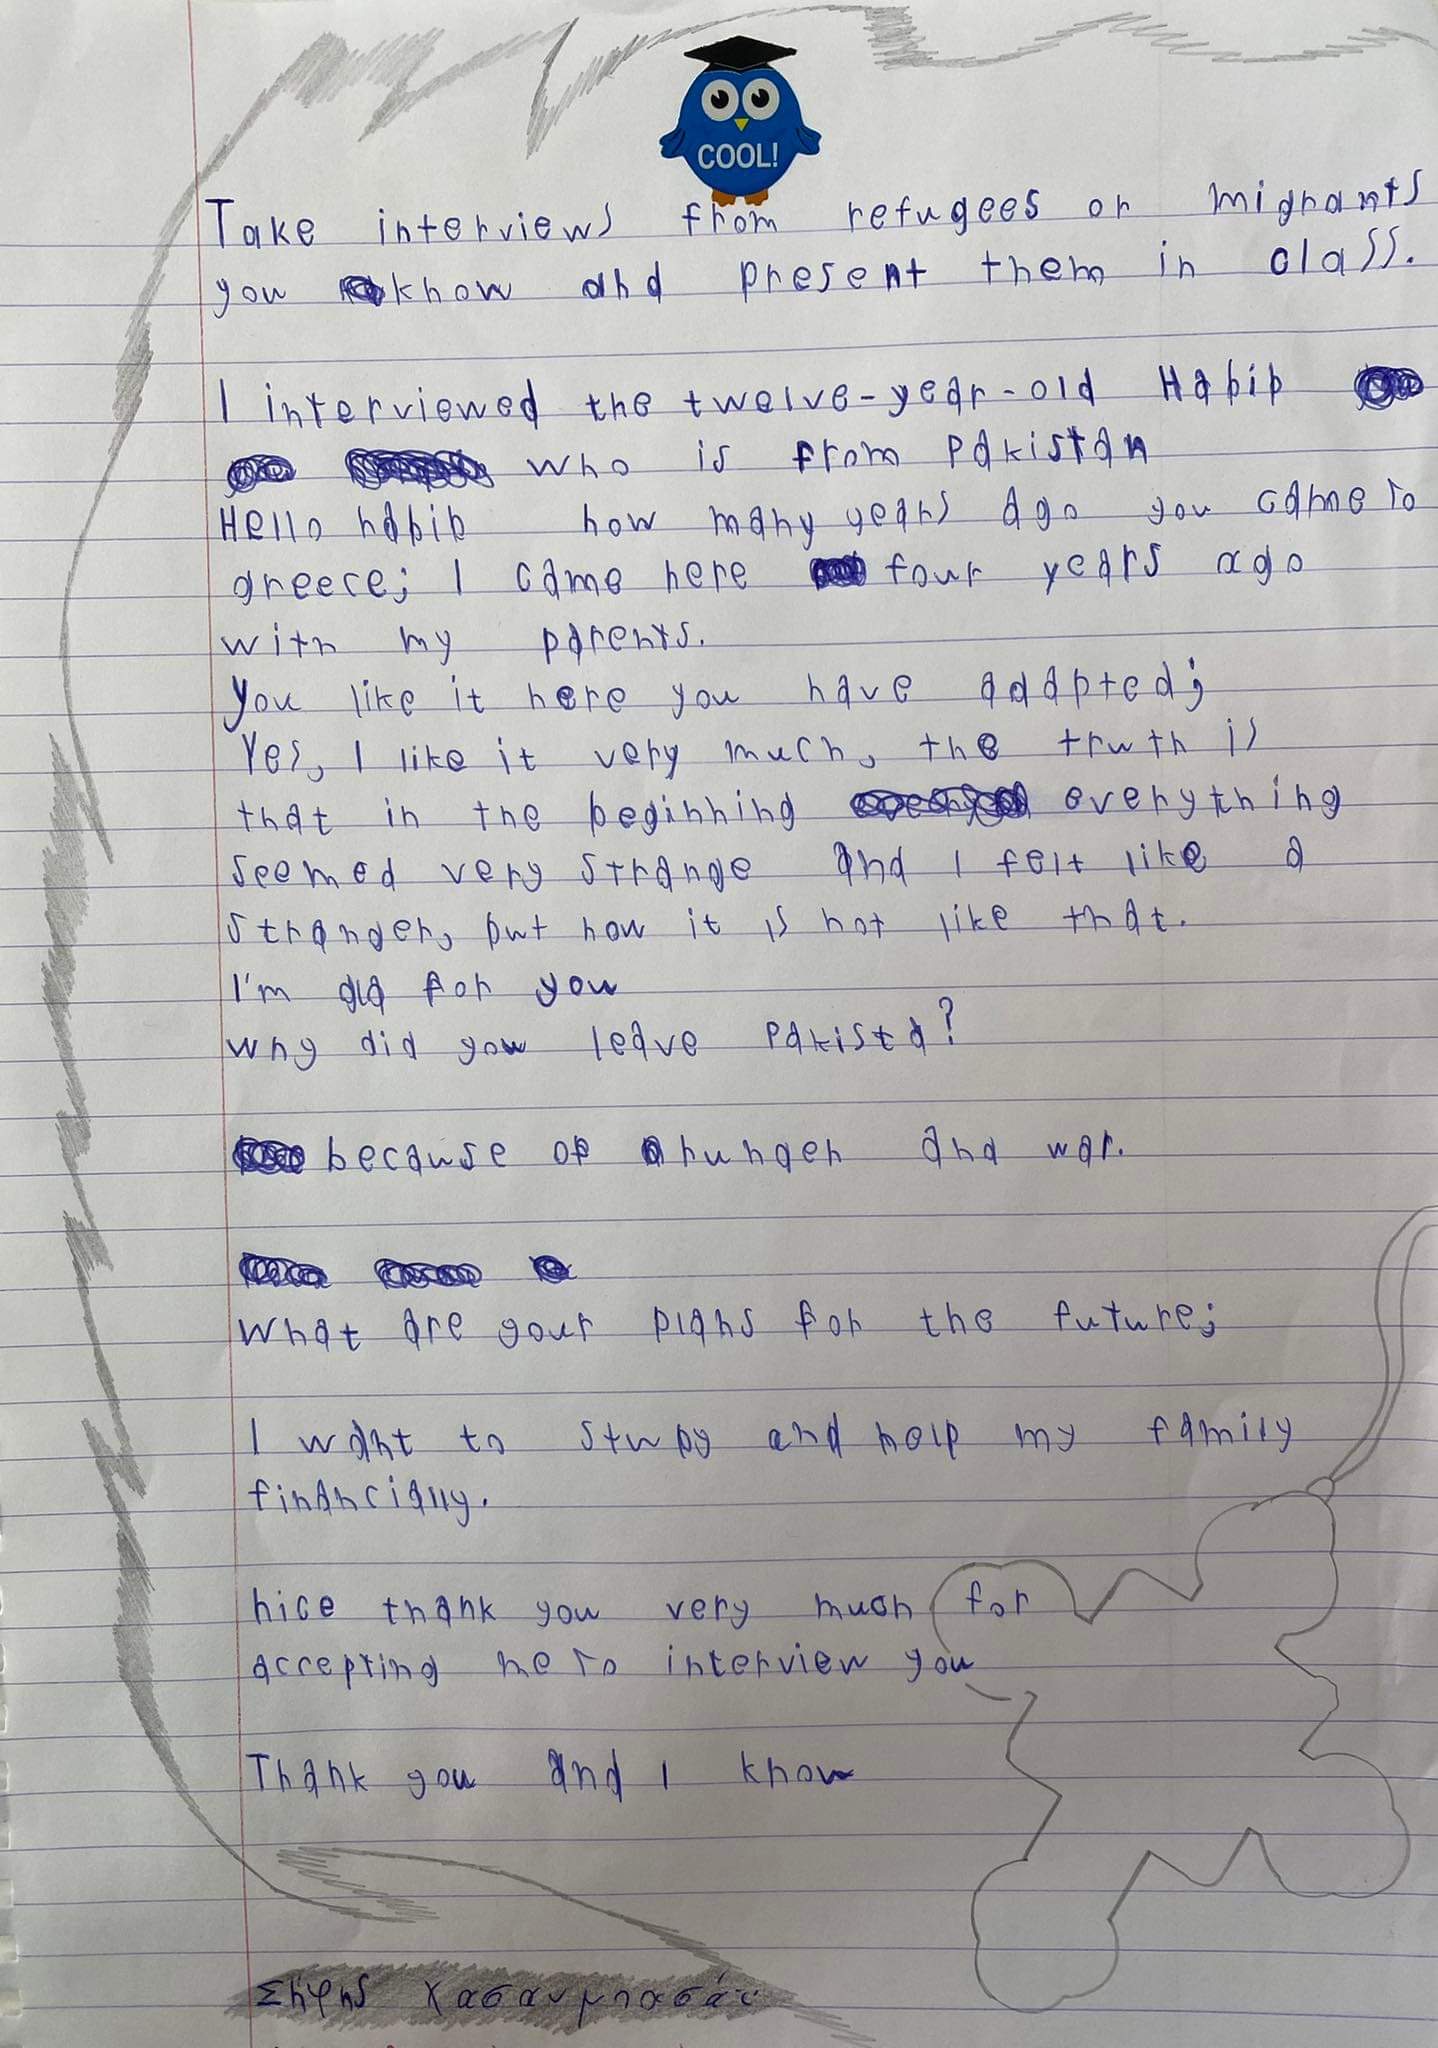 COOL!
Take interviews from refugees or migrants
you know and present them in class.
I interviewed the twelve-year-old Habib
who is from Pakistan
Hello habib how many years ago you came to
greece; I came here four years ago
with my parents.
you like it here you have adapted;
Yes, I like it very much, the truth is
that in the beginning everything
seemed very strange and I felt like a
stranger, but now it is not like that.
I'm gla for you
why did you leave Pakista?
because of hunger and war.
What are your plans for the future;
I want to study and help my family
financially.
nice thank you very much for
accepting me to interview you
Thank you and I know
Σήφης Χασανμπασάι